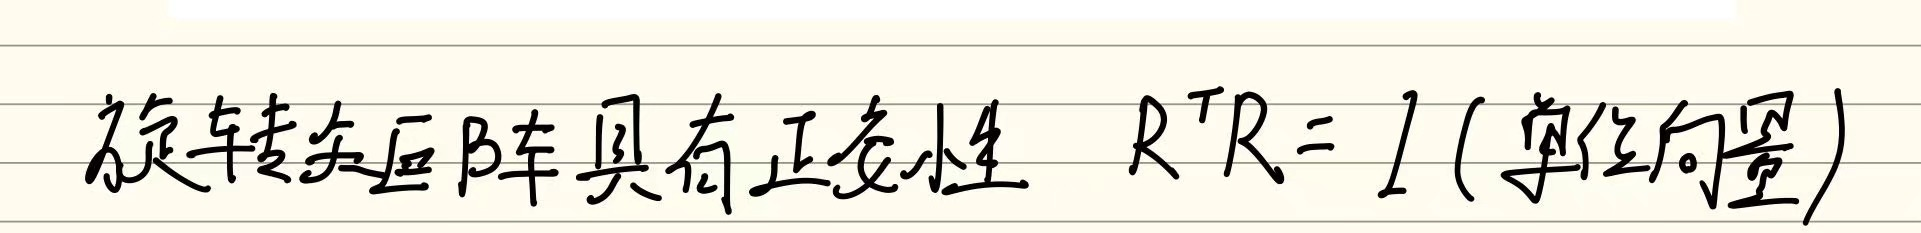 旋转矩阵具有正交性 RᵀR = I (单位向量)